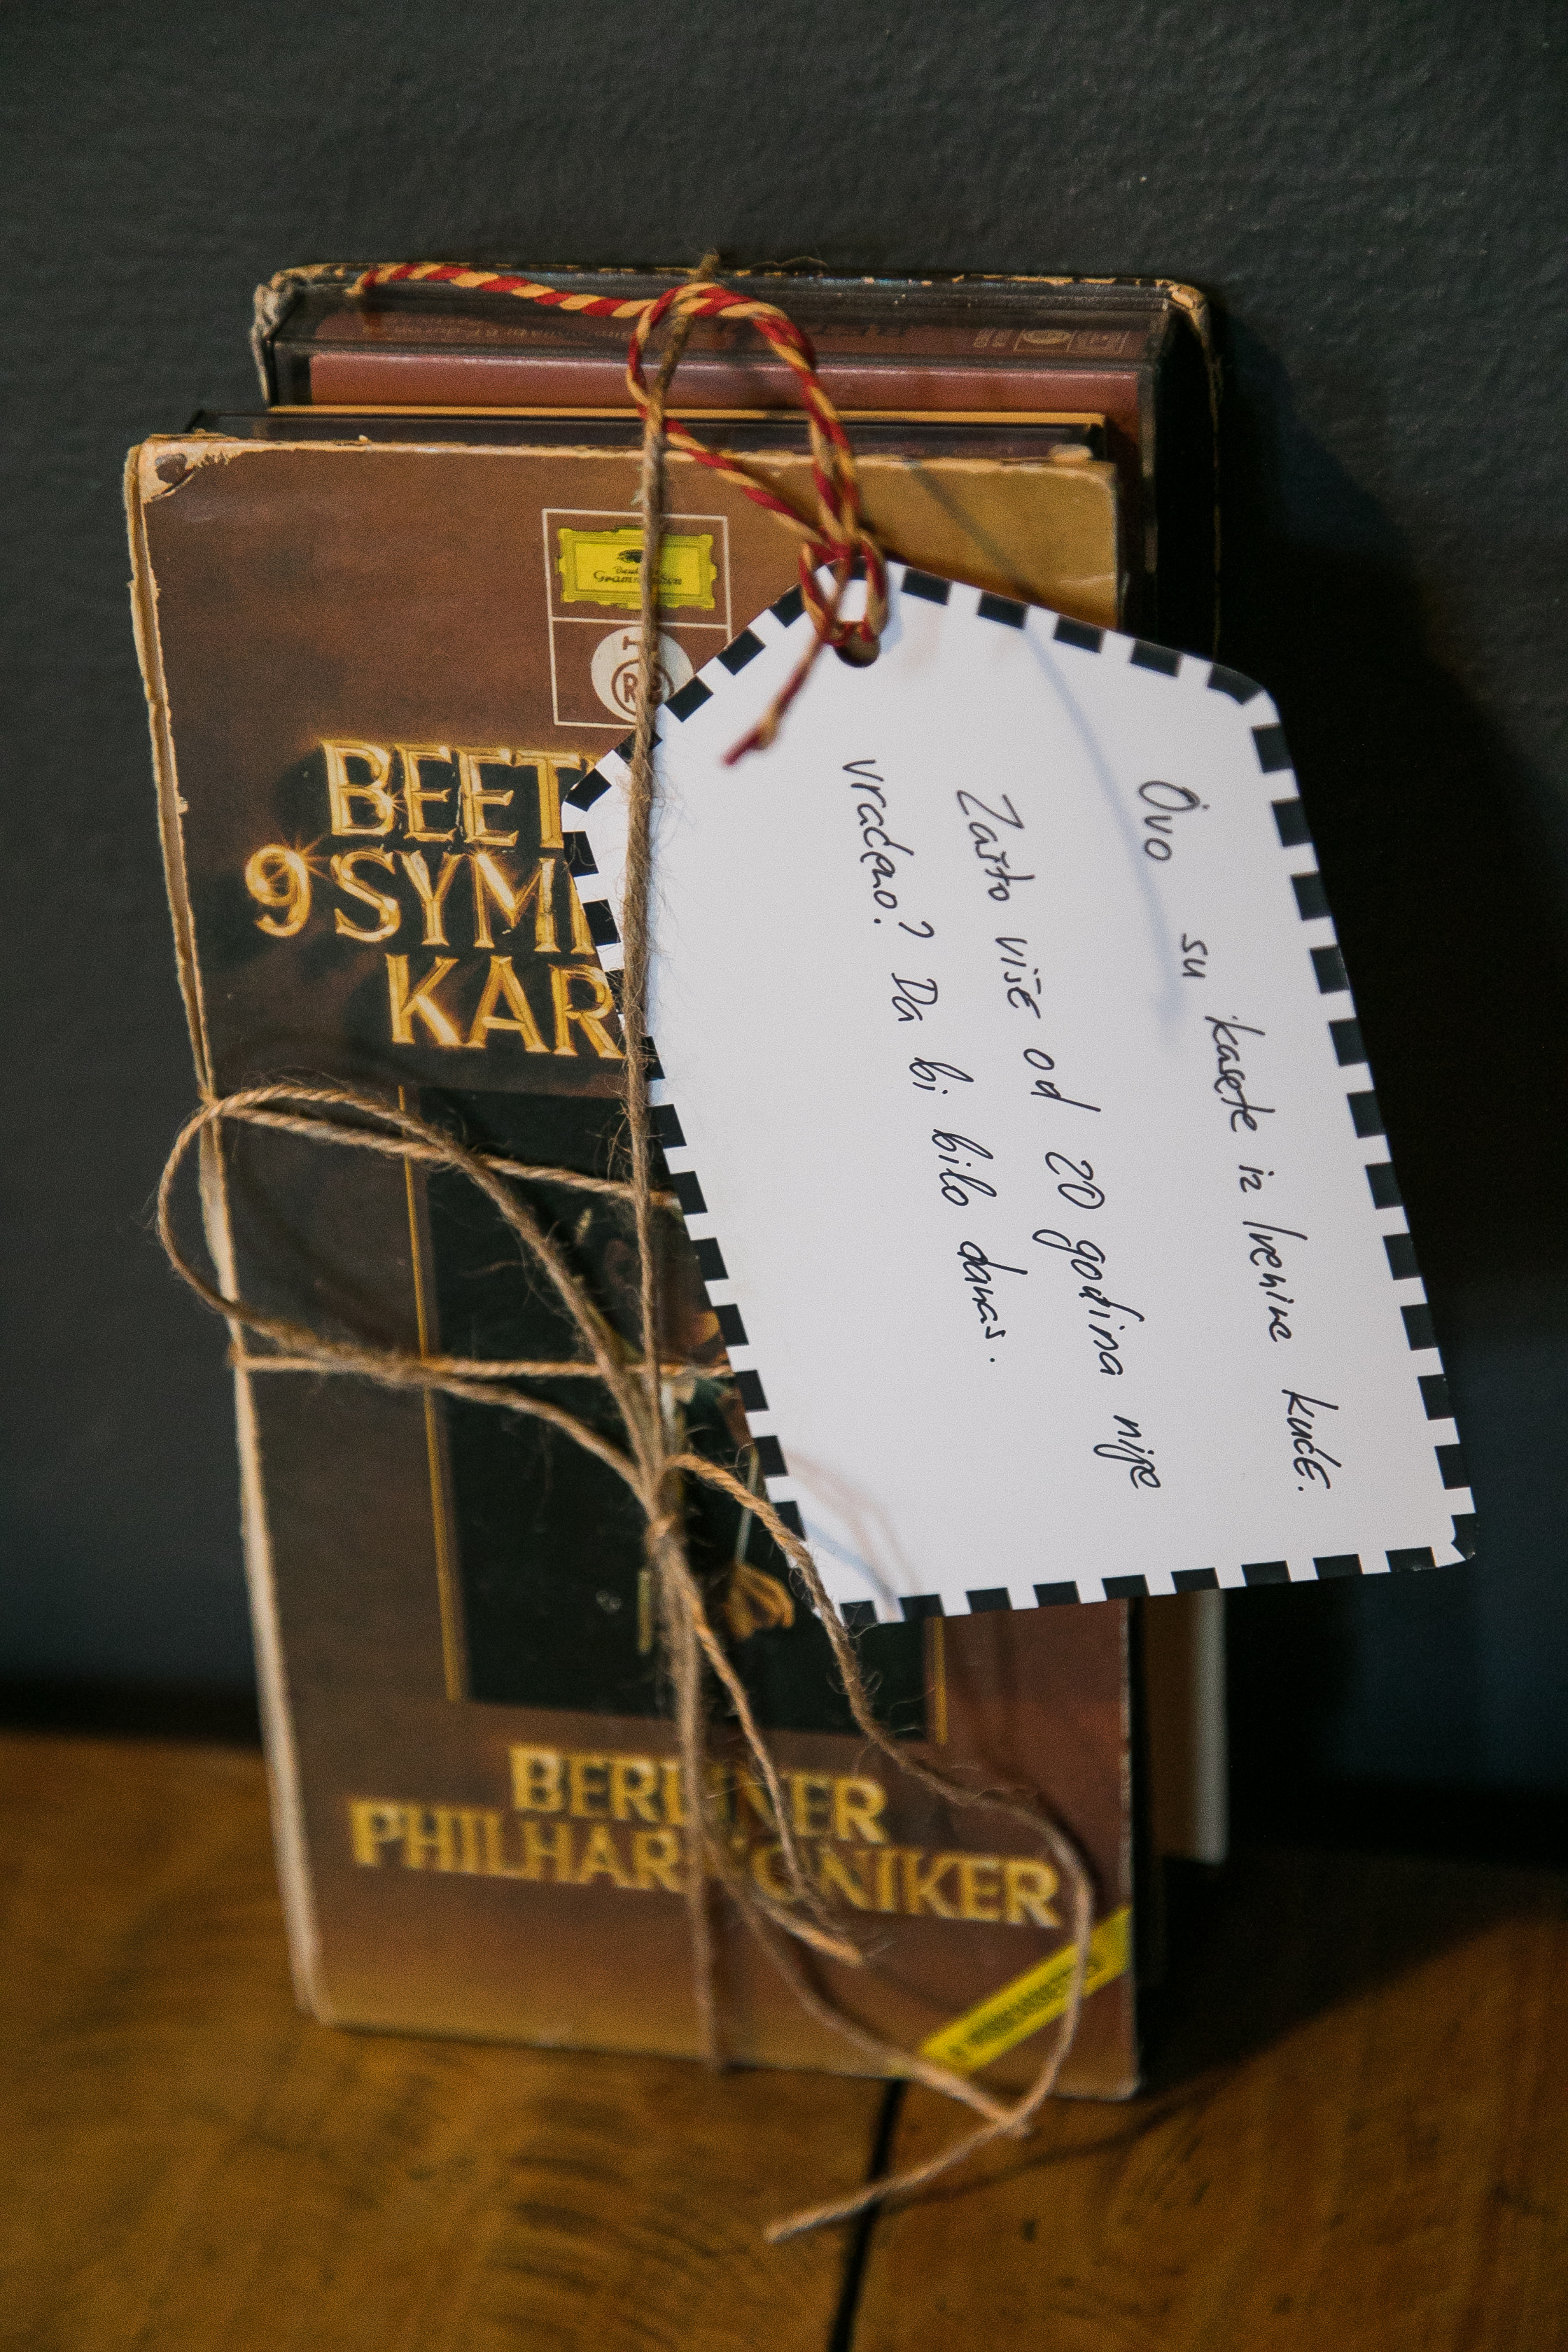 Deutsche
Grammophon
BEET
9 SYM
KAR
BERLINER
PHILHARMONIKER
Ovo su kasete iz Irenine kuće.
Zašto više od 20 godina nije
vraćeno? Da bi bilo danas.